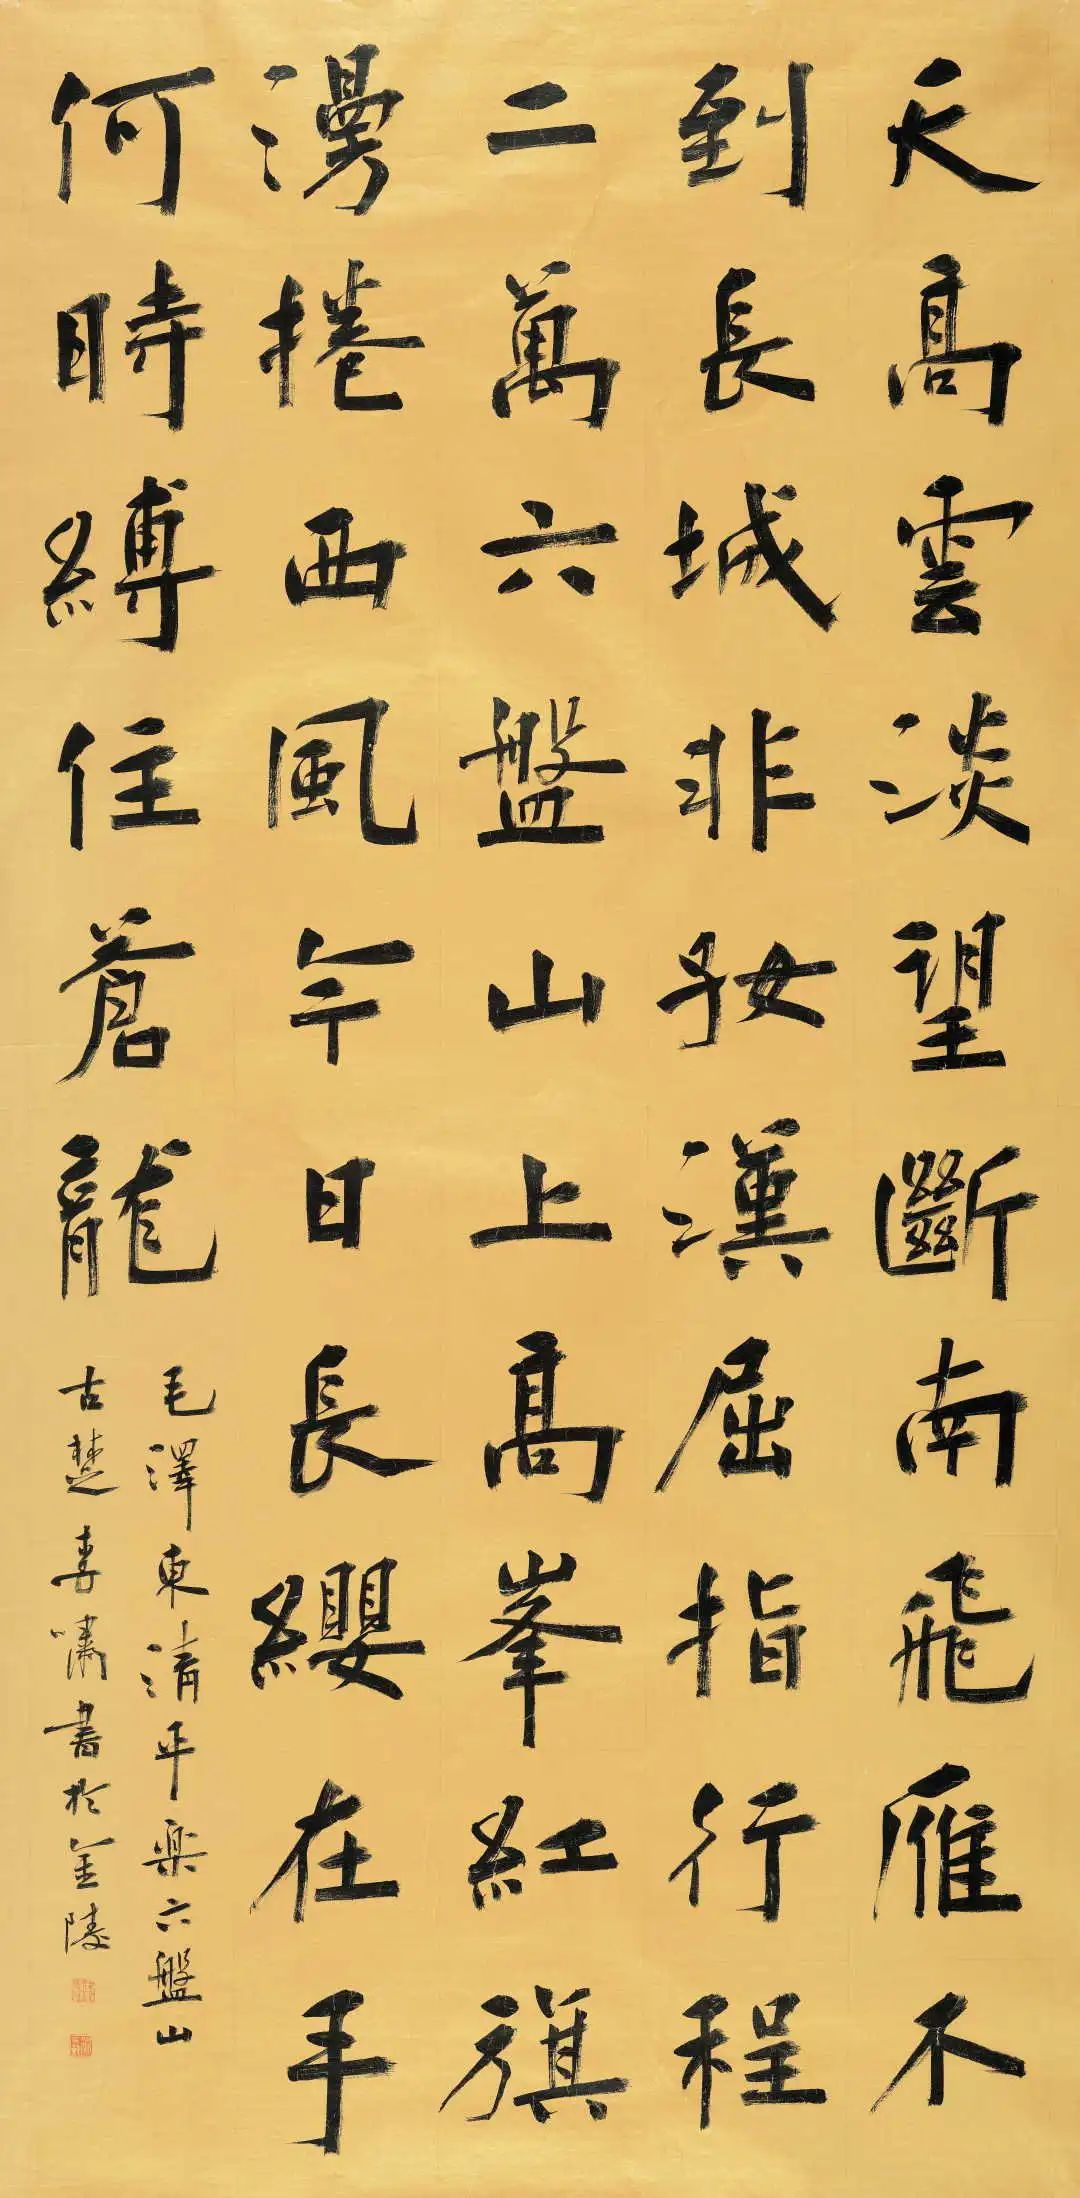 天高雲淡望斷南飛雁不
到長城非好漢屈指行程
二萬六盤山上高峯紅旗
漫捲西風今日長纓在手
何時縛住蒼龍
毛澤東清平樂六盤山
古楚嘯書於金陵